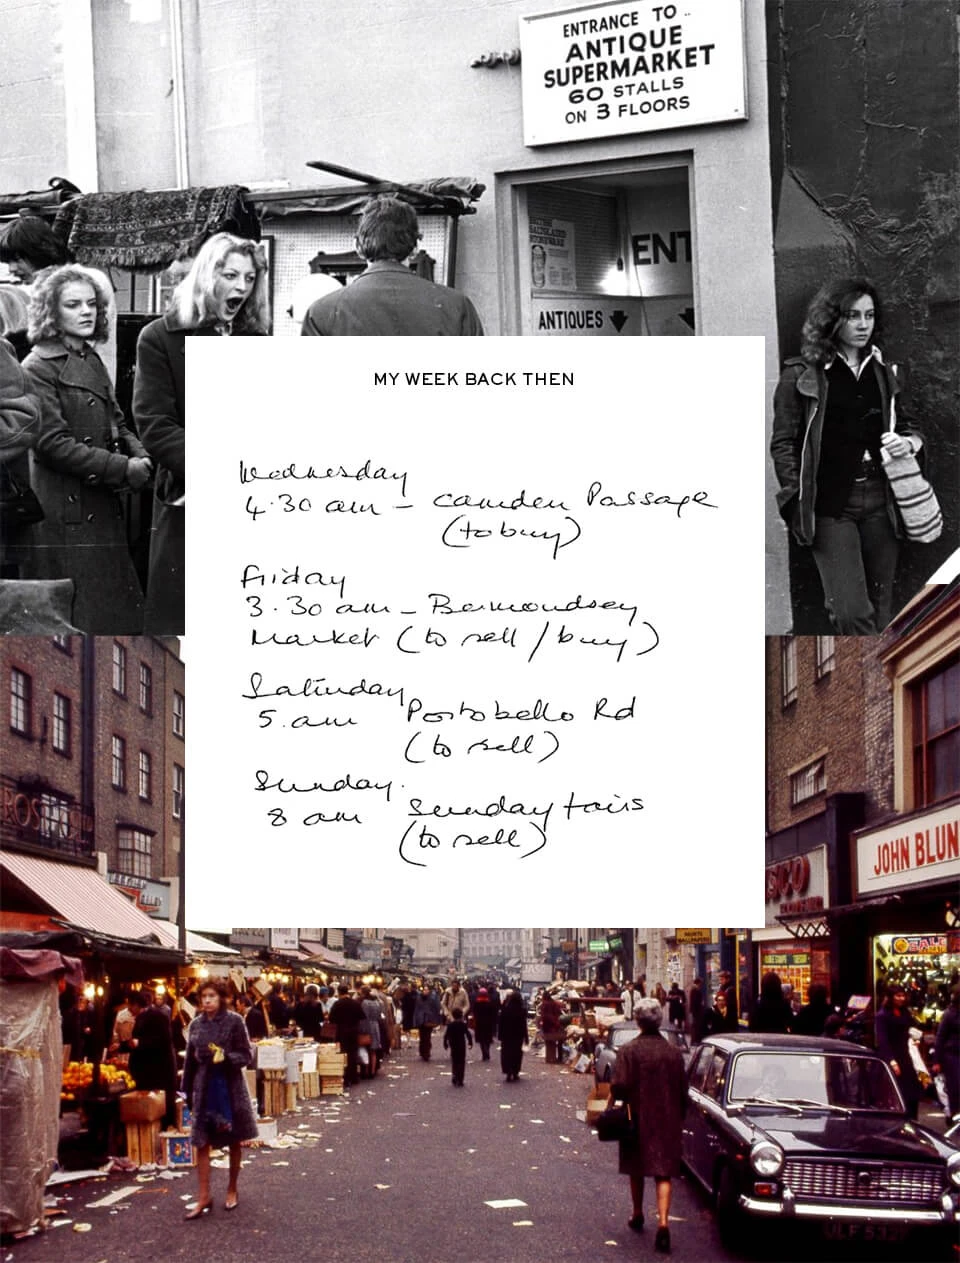 ENTRANCE TO
ANTIQUE
SUPERMARKET
60 STALLS
ON 3 FLOORS
ENT
ANTIQUES
MY WEEK BACK THEN
Wednesday
4.30 am - Camden Passage
(to buy)
Friday
3.30 am - Bermondsey
Market (to sell / buy)
Saturday
5. am Portobello Rd
(to sell)
Sunday.
8 am Sunday fairs
(to sell)
JOHN BLUN
SALE